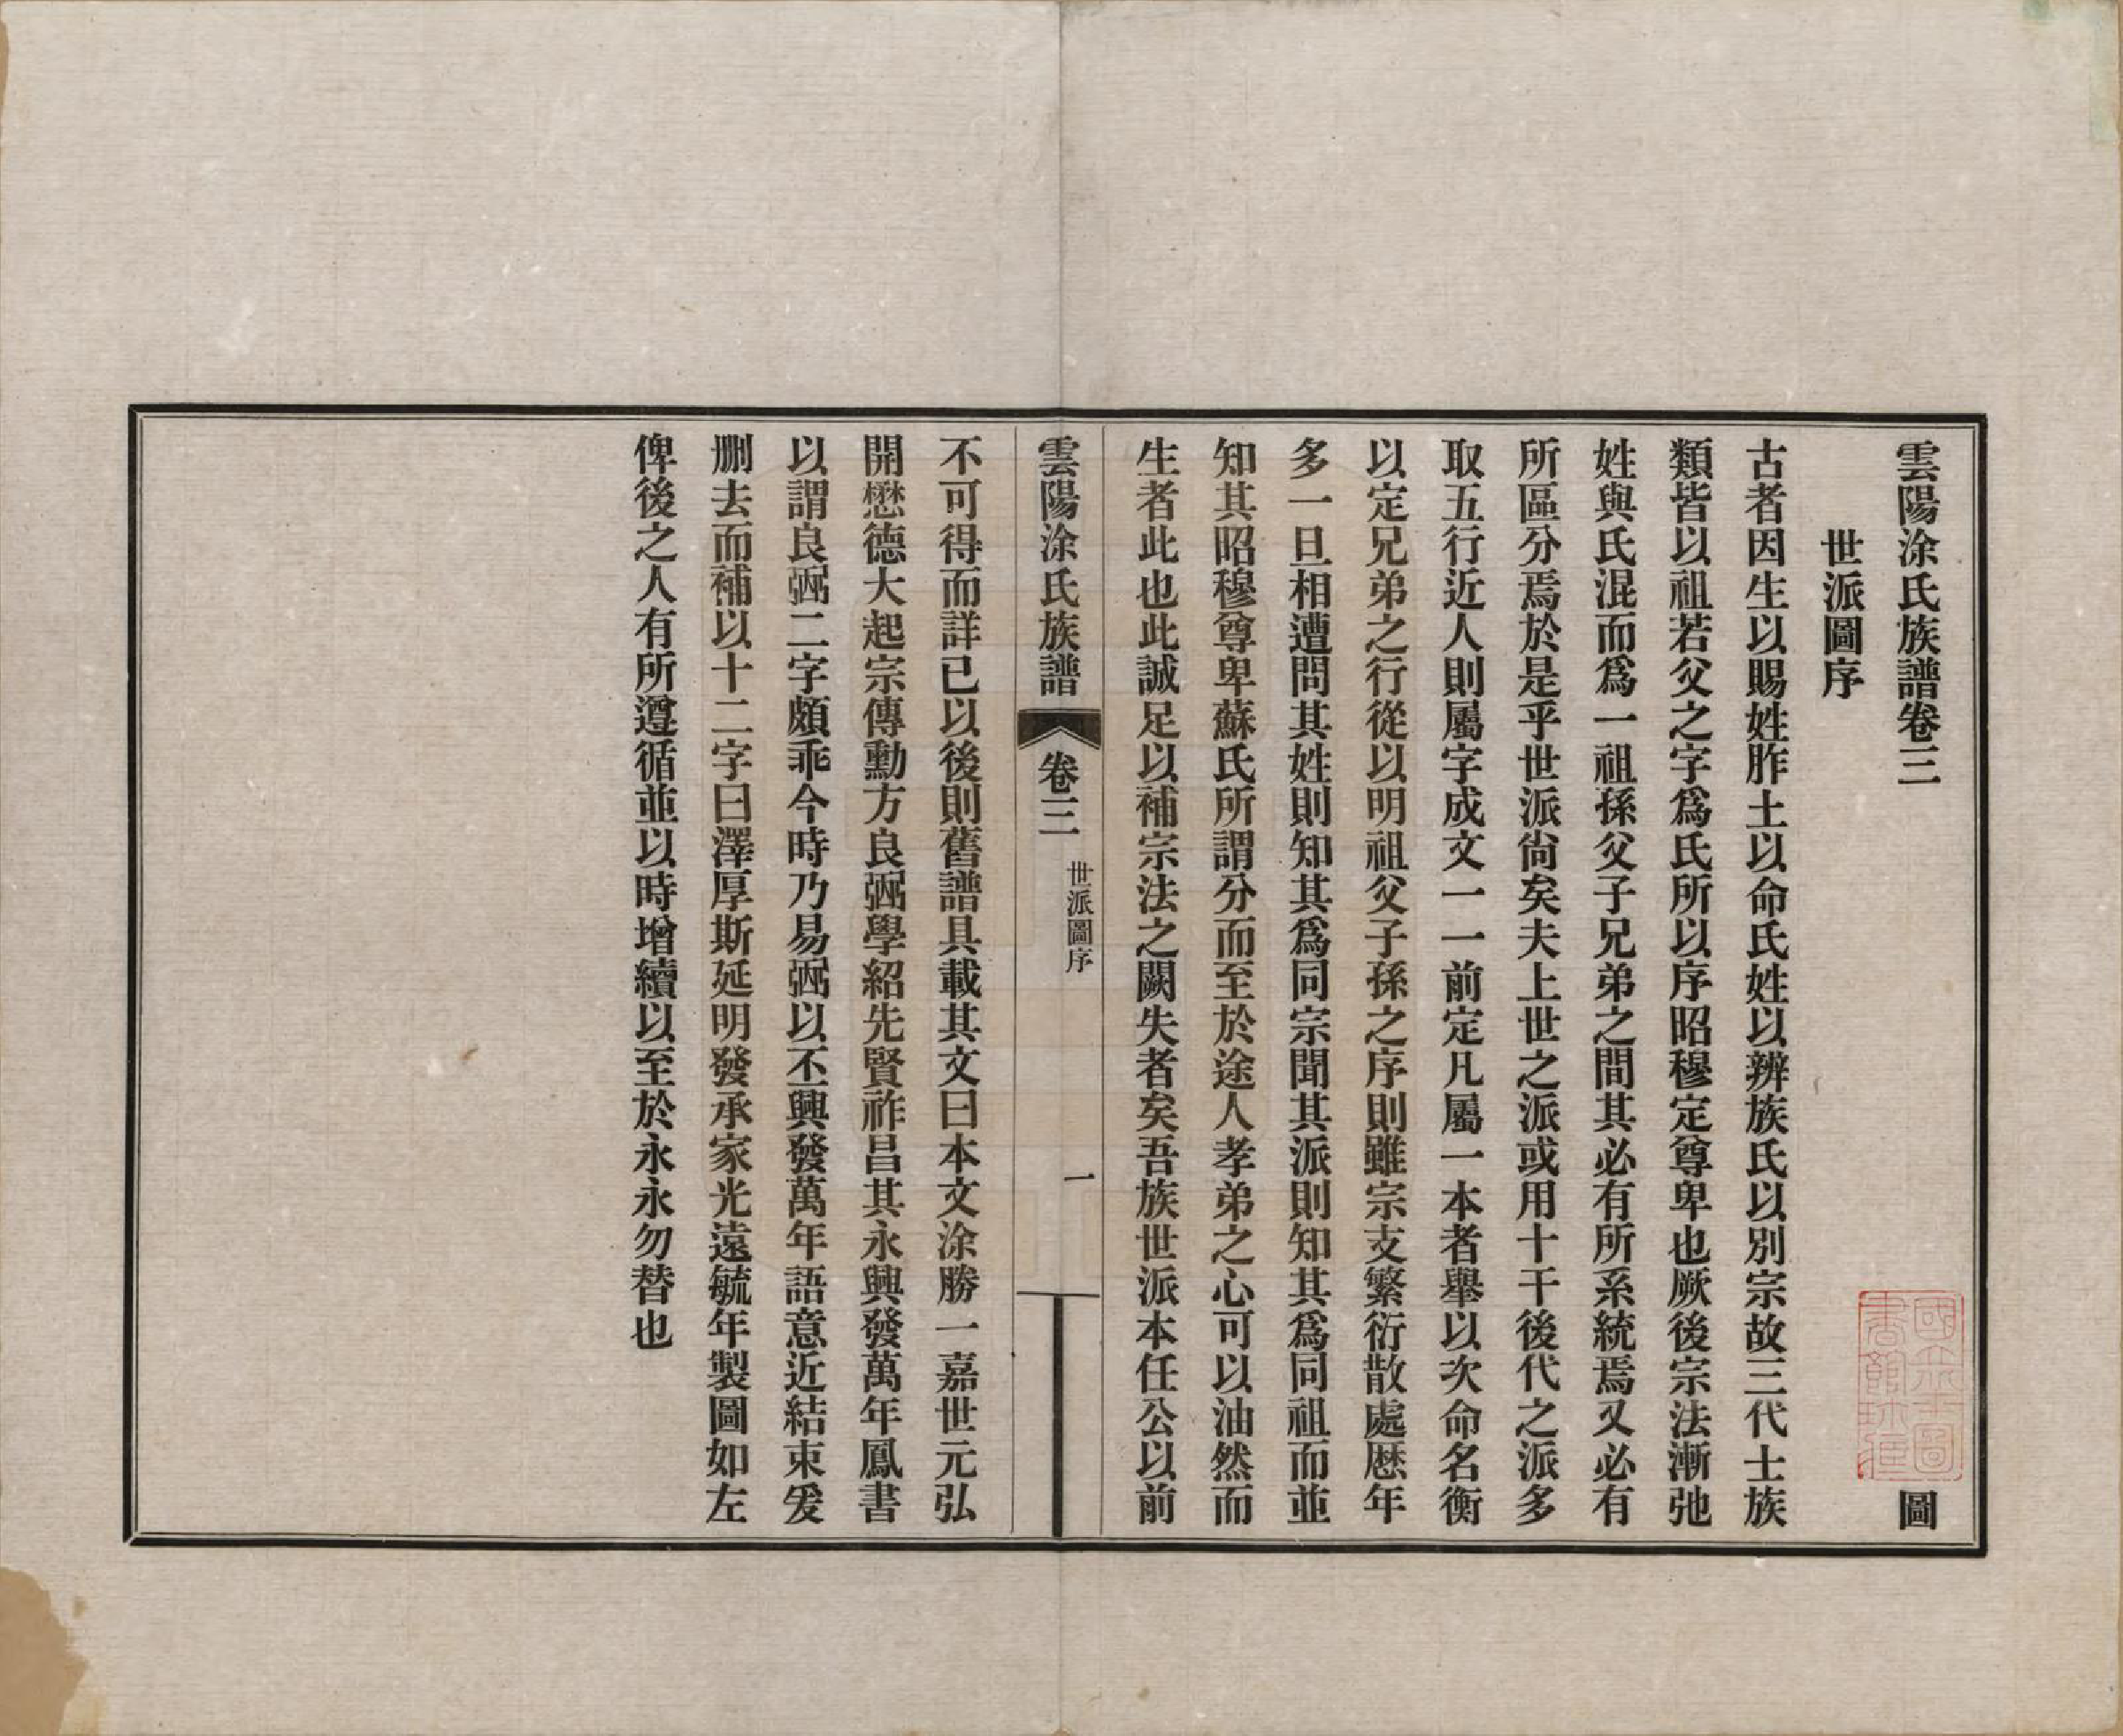 雲陽涂氏族譜卷三　圖
世派圖序
古者因生以賜姓胙土以命氏姓以辨族氏以別宗故三代士族
類皆以祖若父之字爲氏所以序昭穆定尊卑也厥後宗法漸弛
姓與氏混而爲一祖孫父子兄弟之間其必有所系統焉又必有
所區分焉於是乎世派尙矣夫上世之派或用十干後代之派多
取五行近人則屬字成文一一前定凡屬一本者舉以次命名衡
以定兄弟之行從以明祖父子孫之序則雖宗支繁衍散處歷年
多一旦相遭問其姓則知其爲同宗聞其派則知其爲同祖而並
知其昭穆尊卑蘇氏所謂分而至於途人孝弟之心可以油然而
生者此也此誠足以補宗法之闕失者矣吾族世派本任公以前
雲陽涂氏族譜　卷三　世派圖序　一
不可得而詳已以後則舊譜具載其文曰本文涂勝一嘉世元弘
開懋德大起宗傳勳方良弼學紹先賢祚昌其永興發萬年鳳書
以謂良弼二字頗乖今時乃易弼以丕興發萬年語意近結束爰
刪去而補以十二字曰澤厚斯延明發承家光遠毓年製圖如左
俾後之人有所遵循並以時增續以至於永永勿替也
國立北平圖書館珍藏